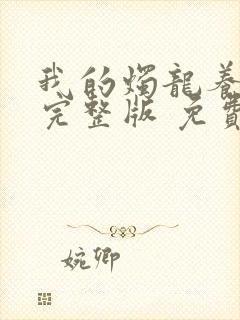 我的燭龍養
完整版 免費
婉卿